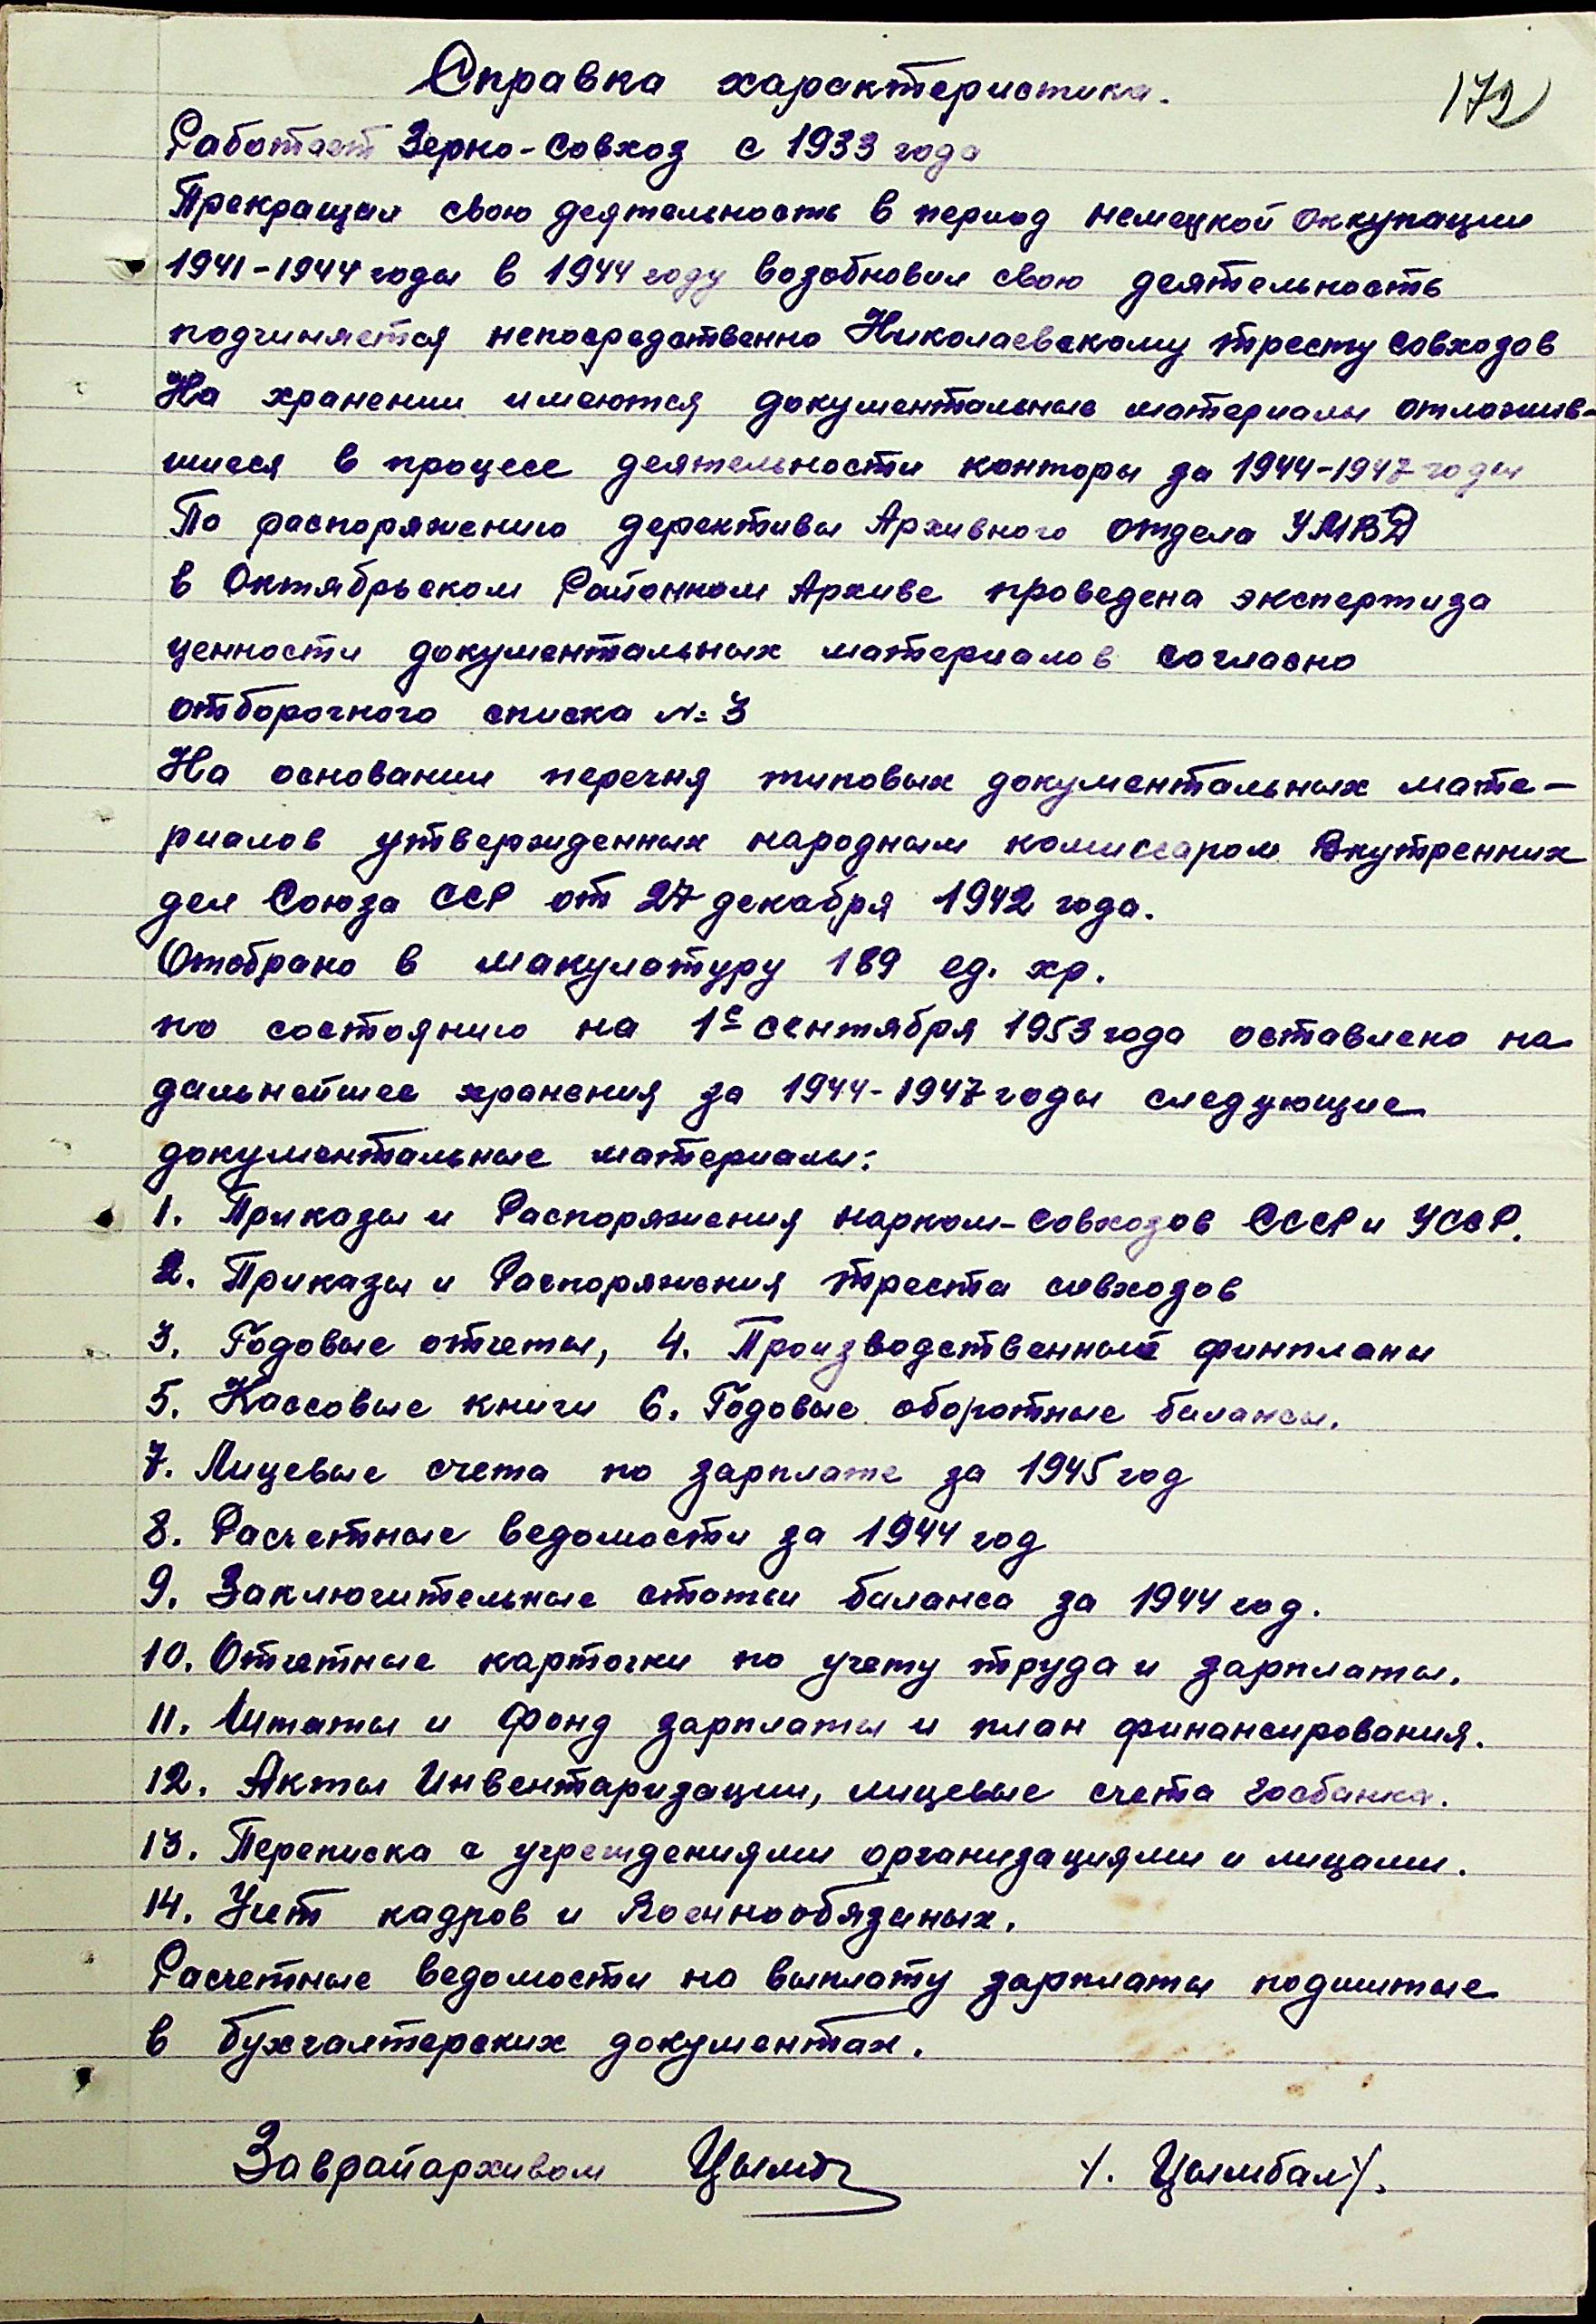 Справка характеристика.
172
Работает Зерно-Совхоз с 1933 года
Прекращал свою деятельность в период немецкой оккупации
1941-1944 годы в 1944 году возобновил свою деятельность
подчиняется непосредственно Николаевскому тресту совхозов
На хранении имеются документальные материалы отложив-
шиеся в процесе деятельности конторы за 1944-1947 годы
По распоряжению дерективы Архивного отдела УМВД
в Октябрьском Районном Архиве проведена экспертиза
ценности документальных материалов согласно
отборочного списка №3
На основании перечня типовых документальных мате-
риалов утвержденных народным комиссаром Внутренних
дел Союза ССР от 27 декабря 1942 года.
Отобрано в макулатуру 189 ед. хр.
по состоянию на 1е сентября 1953 года оставлено на
дальнейшее хранения за 1944-1947 годы следующие
документальные материалы:
1. Приказы и Распоряжения нарком-совхозов СССР и УССР.
2. Приказы и Распоряжения треста совхозов
3. Годовые отчеты, 4. Производственные финпланы
5. Кассовые книги 6. Годовые оборотные балансы.
7. Лицевые счета по зарплате за 1945 год
8. Расчетные ведомости за 1944 год
9. Заключительные статьи баланса за 1944 год.
10. Отчетные карточки по учету труда и зарплаты.
11. Штаты и фонд зарплаты и план финансирования.
12. Акты Инвентаризации, лицевые счета госбанка.
13. Переписка с учреждениями организациями и лицами.
14. Учет кадров и Военнообязаных.
Расчетные ведомости на выплату зарплаты подшитые
в бухгалтерских документах.
Заврайархивом Цымб /. Цымбал/.